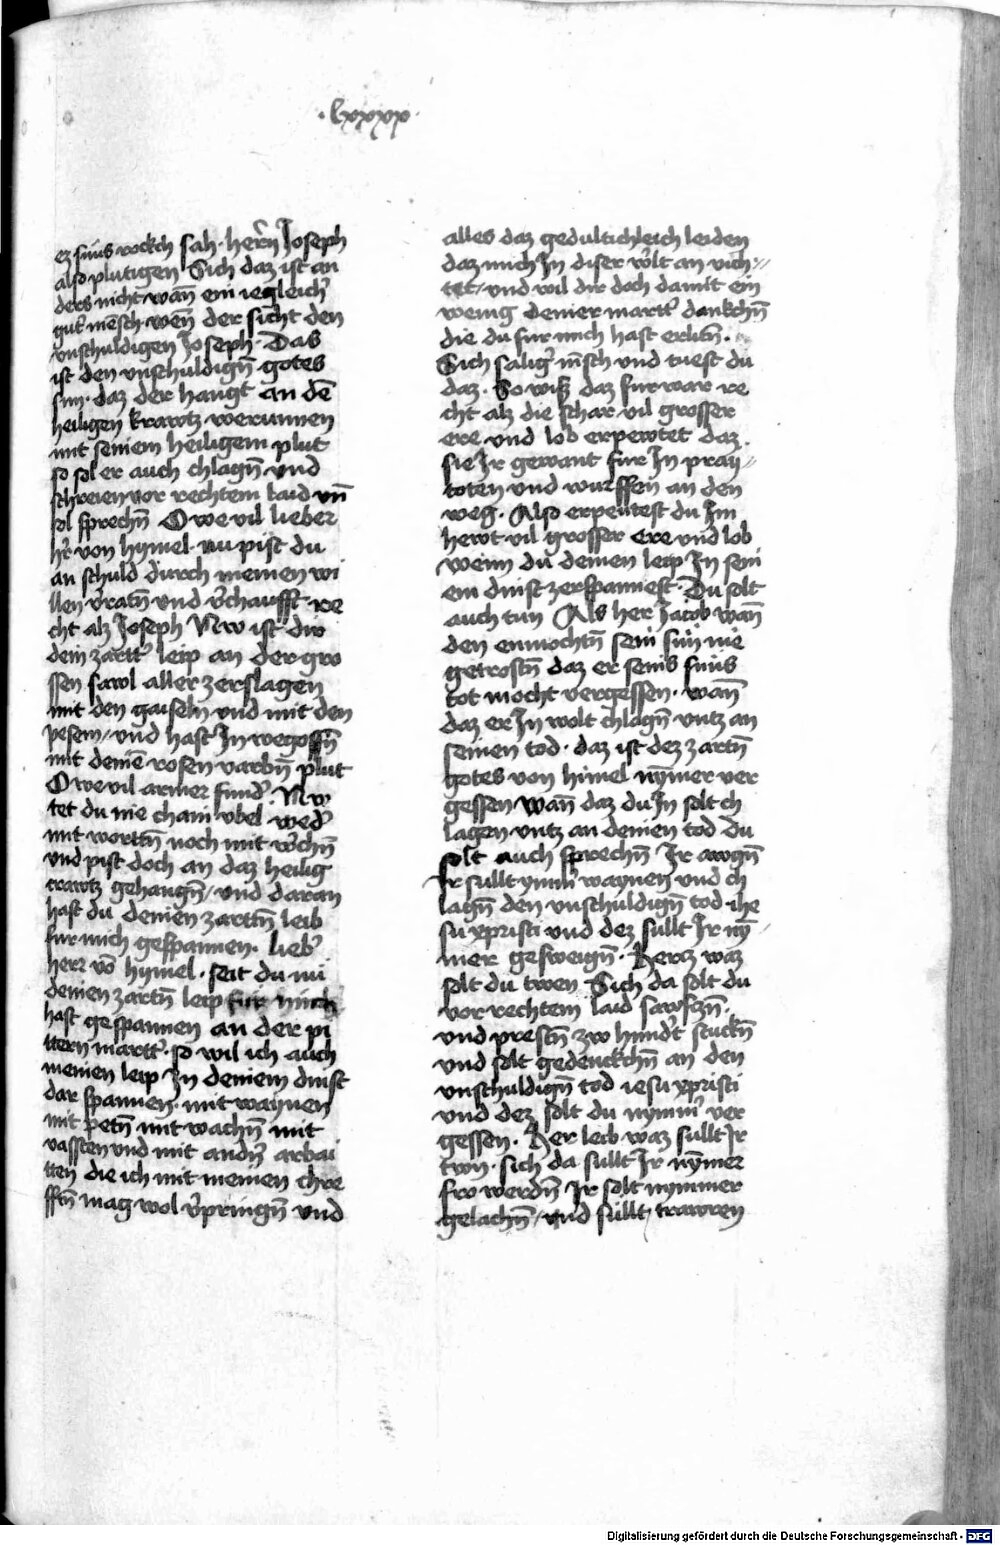 ·lxxxx·
ez suns rockch sah· herñ Joseph
also plutigen Sich daz ist an
ders nicht wañ ein iegleich᷑
gut᷑ mēsch· wen̄ der sicht den
vnschuldigen Joseph· Das
ist den vnschuldign̄ gotes
sun· daz der hangt an dē
heiligen krawtz werunnen
mit seinem heiligem plut
so sol er auch chlagn̄ vnd
schreien vor rechtem laid vn̄
sol sprechn̄ O we vil lieber
hr̄ von hymel· nu pist du
an schuld durch meinen wi
llen v᷑ratn̄ vnd v᷑chaufft· re
cht alz Joseph Nw ist dir
dein zartt᷑ leip an der gro
ssen sawl aller zerslagen
mit den gaiseln vnd mit den
pesem/ vnd hast In wegossn̄
mit deinē rosen varbn̄ plut
O we vil armer sund᷑· Nw
tet du nie chain vbel wed᷑
mit worttn̄ noch mit w᷑chn̄
vnd pist doch an daz heilig
crawtz gehangn̄/ vnd daran
hast du deinen zarttn̄ leib
fur mich gespannen· lieb᷑
herr vō hymel· seit du nu
deinen zartn̄ leip fur mich
hast gespannen an der pi
ttern martt᷑· so wil ich auch
meinen leip In deinem dinst
dar spannen· mit waynen
mit petn̄ mit wachn̄ mit
vassten vnd mit andn̄ arbai
tten die ich mit meinen chre
fftn̄ mag wol v᷑pringn̄ vnd
alles daz gedultichleich leiden
daz mich In diser w᷑lt an vich//
tet/ vnd wil dir doch damit ein
wenig deiner martt᷑ dankchn̄
die du fur mich hast erlitn̄·
Sich salig᷑ mēsch vnd tuest du
daz· So wiß daz fur war re
cht alz die schar vil grosser
ere vnd lob erpewtet daz·
sie Jr gewant fur In pray//
toten vnd wurffen an den
weg· Also erpeutest du Im
hewt vil grosser ere vnd lob
wenn du deinen leip In sein
em dinst zerspannest· Du solt
auch tun Als her Jacob wañ
den enmochtn̄ sein sun nie
getrostn̄ daz er seins suns
tot mocht vergessen· wañ
daz er In wolt chlagn̄ vntz an
seinen tod· daz ist dez zartn̄
gotes von himel nym̄er ver
gessen wañ daz du In solt ch
lagen vntz an deinen tod du
solt auch sprechn̄ Jr awgn̄
Jr sullt ymm᷑ waynen vnd ch
lagn̄ den vnschuldign̄ tod ihe
su xpristi vnd dez sullt Jr ny̅
mer gesweign̄· Hercz waz
solt du twen Sich da solt du
vor rechtem laid sawfczn̄·
vnd prestn̄ zw hundt stuckn̄
vnd solt gedenckchn̄ an den
vnschuldign̄ tod iesu xpristi
vnd dez solt du nymm᷑ ver
gessen· Her leib waz sullt Jr
twn· sich da sullt Jr nym̄er
fro werdn̄ Jr solt nymmer
gelachn̄/ vnd sullt trawren